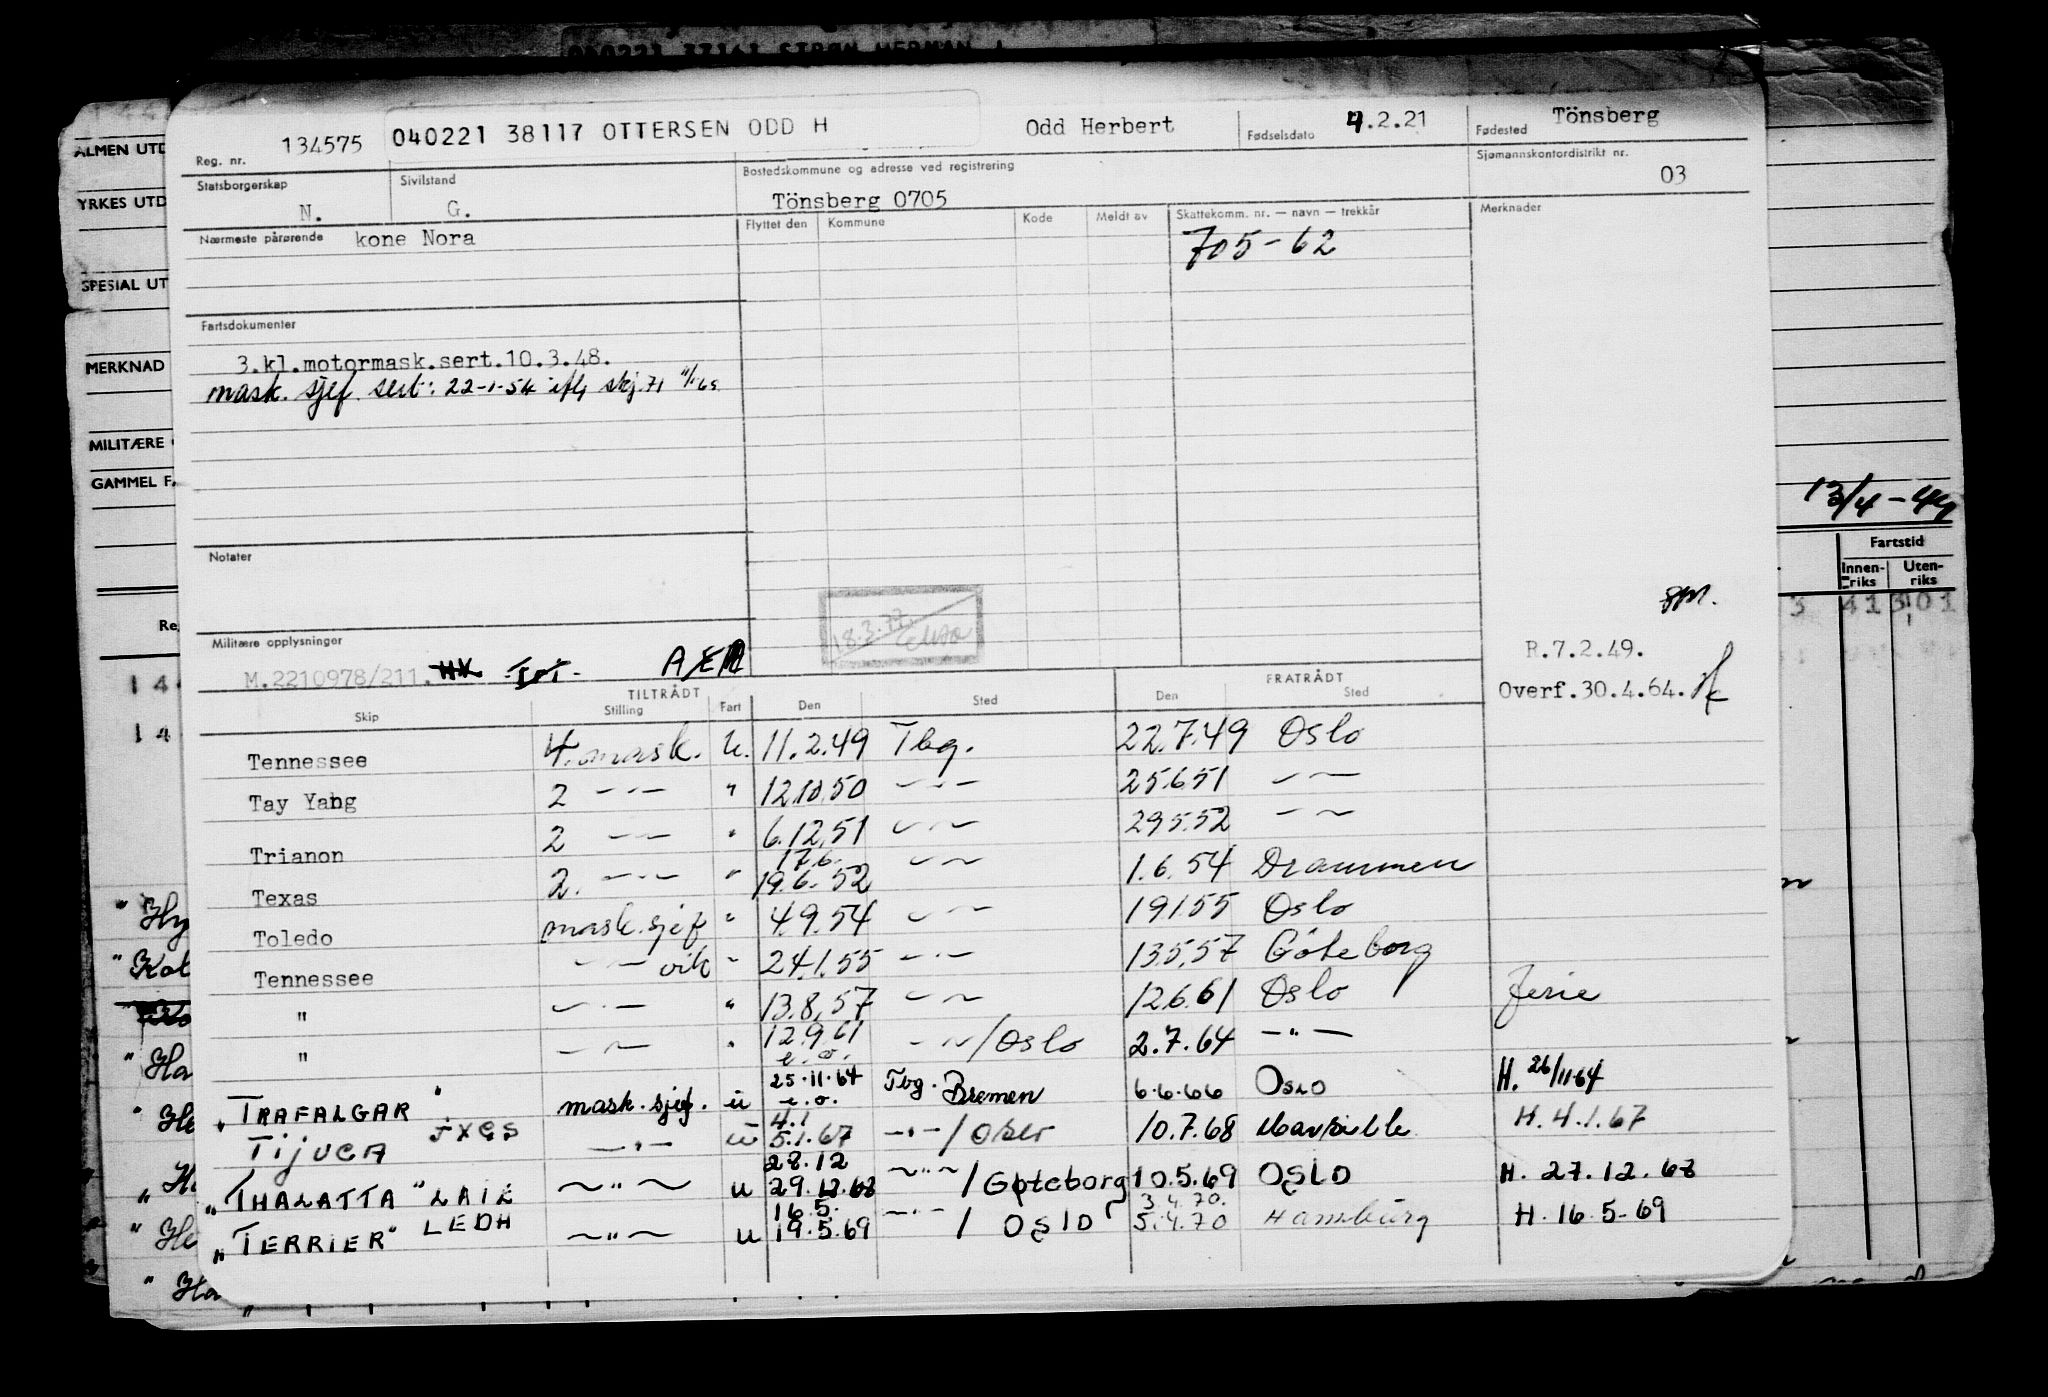 134575 040221 38117 OTTERSEN ODD H Odd Herbert Fødselsdato 4.2.21 Fødested Tönsberg
Reg. nr.
Statsborgerskap N. Sivilstand G. Bostedskommune og adresse ved registrering Tönsberg 0705 Sjømannskontordistrikt nr. 03
Nærmeste pårørende kone Nora
Flyttet den Kommune Kode Meldt av Skattekomm. nr. — navn — trekkår Merknader
705-62
Fartsdokumenter
3.kl.motormask.sert.10.3.48.
mask. sjef. sert: 22-1-54
Notater
18.3.
Militære opplysninger
M.2210978/211.
R.7.2.49.
Overf.30.4.64.
TILTRÅDT FRATRÅDT
Skip Stilling Fart Den Sted Den Sted
Tennessee 4. mask. U. 11.2.49 Tbg. 22.7.49 Oslo
Tay Yang 2 —"— " 12.10.50 —"— 25.6.51 —"—
Trianon 2 —"— " 6.12.51 —"— 29.5.52 —"—
17.6.
Texas 2. —"— " 19.6.52 —"— 1.6.54 Drammen
Toledo mask.sjef " 4.9.54 —"— 19.1.55 Oslo
Tennessee —"— vik " 24.1.55 —"— 13.5.57 Göteborg
" —"— " 13.8.57 —"— 12.6.61 Oslo Ferie
" —"— " 12.9.61 —"—/Oslo 2.7.64 —"—
e.o.
25.11.64
"TRAFALGAR" mask.sjef. u e.o. Tbg. Bremen 6.6.66 OSLO H. 26/11-64
4.1
TIJUCA JXGS —"— u 5.1.67 —"—/Oslo 10.7.68 H.4.1.67
28.12
"THALATTA" LAIE —"— u 29.12.68 —"—/Göteborg 10.5.69 OSLO H. 27.12.68
16.5. 3.4.70.
"TERRIER" LEDH —"— u 19.5.69 —"—/OSLO 5.4.70 Hamburg H. 16.5-69
ALMEN UTD
YRKES UTD
SPESIAL UT
MERKNAD
MILITÆRE
GAMMEL F
13/4-44
Fartstid
Innenriks Utenriks